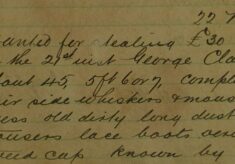 22 N
anted for stealing £30
the 21st inst George Cla
bout 45, 5ft 6 or 7, comple
air side whiskers & mous
ess old dirty long dust
ousers lace boots
eed cap known by